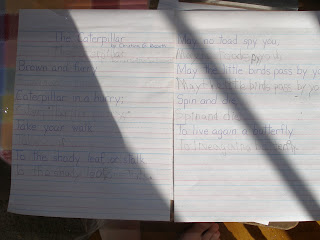 The Caterpillar
by Christina G. Rossetti
The Caterpillar
Brown and furry
Caterpillar in a hurry;
Take your walk
To the shady leaf or stalk.
To the shady leaf
May no toad spy you,
May the little birds pass by you;
May the little birds pass by you
Spin and die,
Spin and die,
To live again a butterfly.